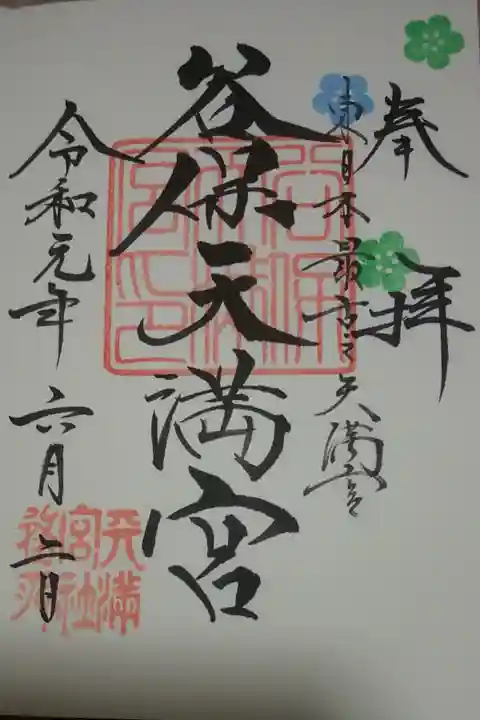 奉拝
東日本最古之天満宮
谷保天満宮
令和元年六月二日